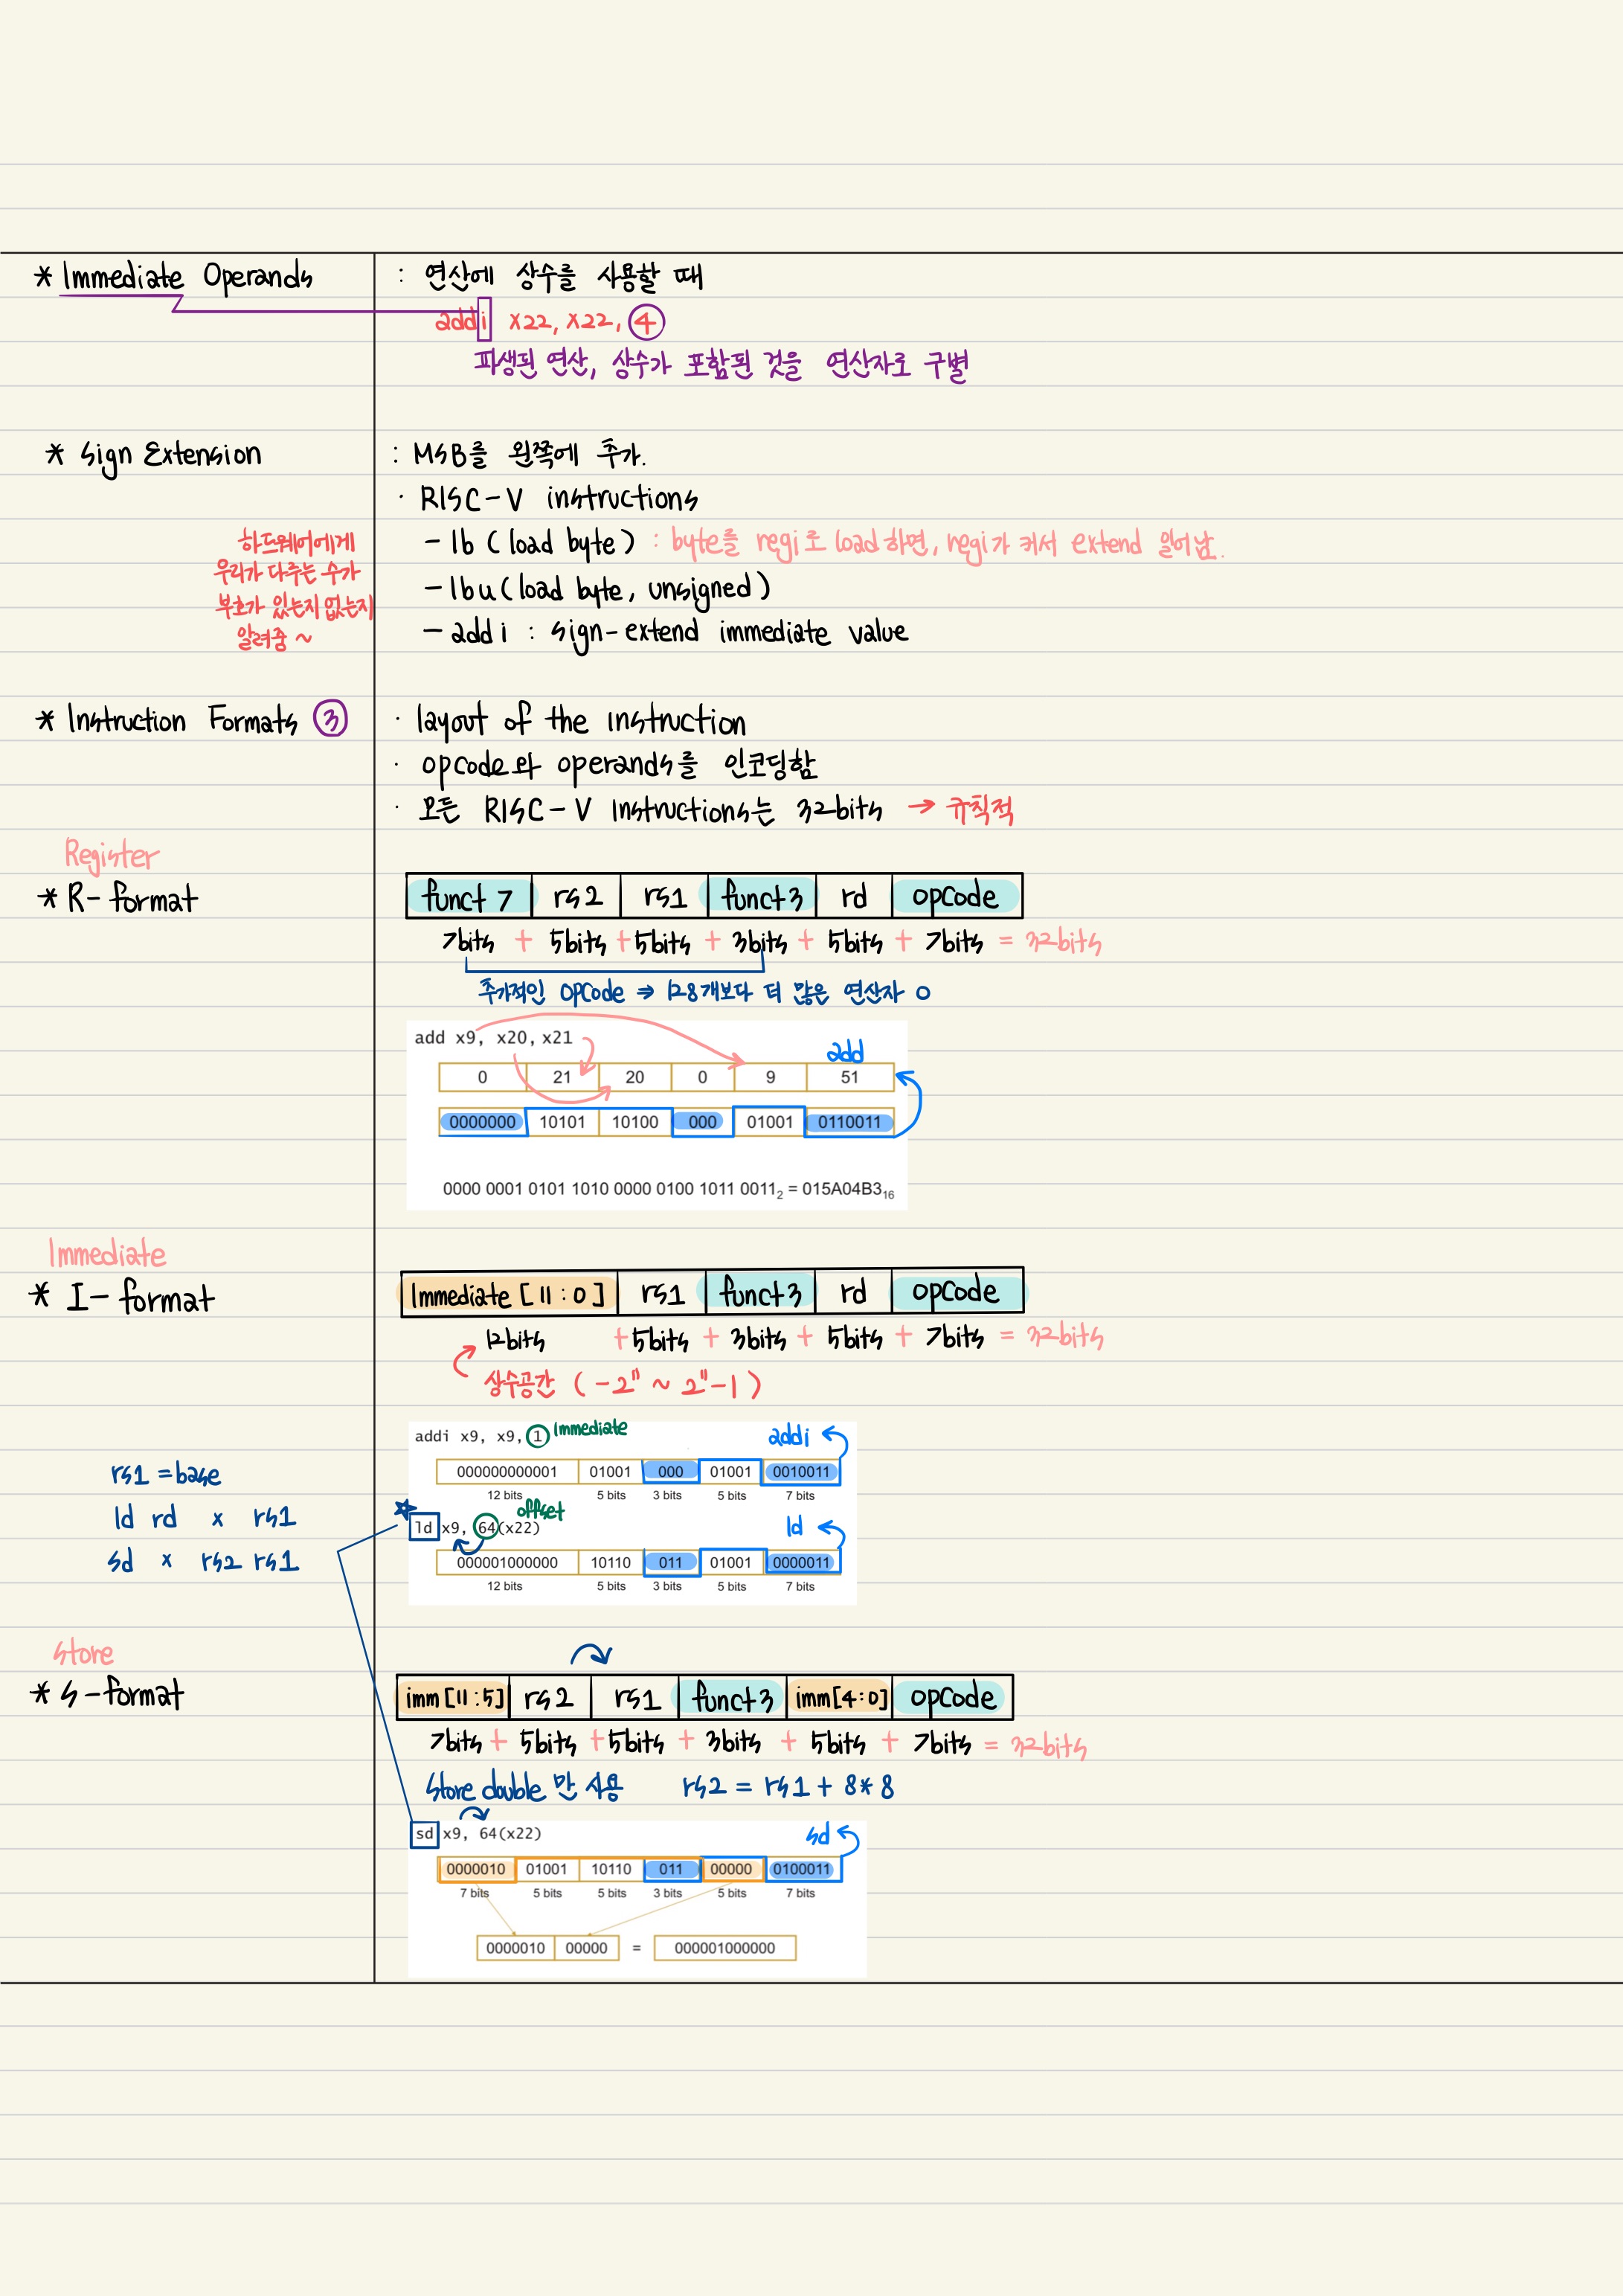 * Immediate Operands : 연산에 상수를 사용할 때
addi x22, x22, 4
파생된 연산, 상수가 포함된 것을 연산자로 구별
* Sign Extension : MSB를 왼쪽에 추가.
· RISC-V instructions
- lb (load byte) : byte를 regi로 load하면, regi가 커서 extend 일어남.
- lbu (load byte, unsigned)
- addi : sign-extend immediate value
하드웨어에게
우리가 다루는 수가
부호가 있는지 없는지
알려줌 ~
* Instruction Formats ③ · layout of the instruction
· opcode와 operands를 인코딩함
· 모든 RISC-V Instructions는 32bits → 규칙적
Register
* R-format funct 7 rs2 rs1 funct3 rd opcode
7bits + 5bits + 5bits + 3bits + 5bits + 7bits = 32bits
추가적인 opcode ⇒ 128개보다 더 많은 연산자 O
add x9, x20, x21
add
0 21 20 0 9 51
0000000 10101 10100 000 01001 0110011
0000 0001 0101 1010 0000 0100 1011 0011₂ = 015A04B3₁₆
Immediate
* I-format Immediate [11:0] rs1 funct3 rd opcode
12bits + 5bits + 3bits + 5bits + 7bits = 32bits
상수공간 (-2¹¹ ~ 2¹¹-1)
addi x9, x9, 1 Immediate addi
000000000001 01001 000 01001 0010011
12 bits 5 bits 3 bits 5 bits 7 bits
offset
ld x9, 64(x22) ld
000001000000 10110 011 01001 0000011
12 bits 5 bits 3 bits 5 bits 7 bits
rs1 = base
ld rd x rs1
sd x rs2 rs1
Store
* S-format imm[11:5] rs2 rs1 funct3 imm[4:0] opcode
7bits + 5bits + 5bits + 3bits + 5bits + 7bits = 32bits
store double 만 사용 rs2 = rs1 + 8*8
sd x9, 64(x22) sd
0000010 01001 10110 011 00000 0100011
7 bits 5 bits 5 bits 3 bits 5 bits 7 bits
0000010 00000 = 000001000000